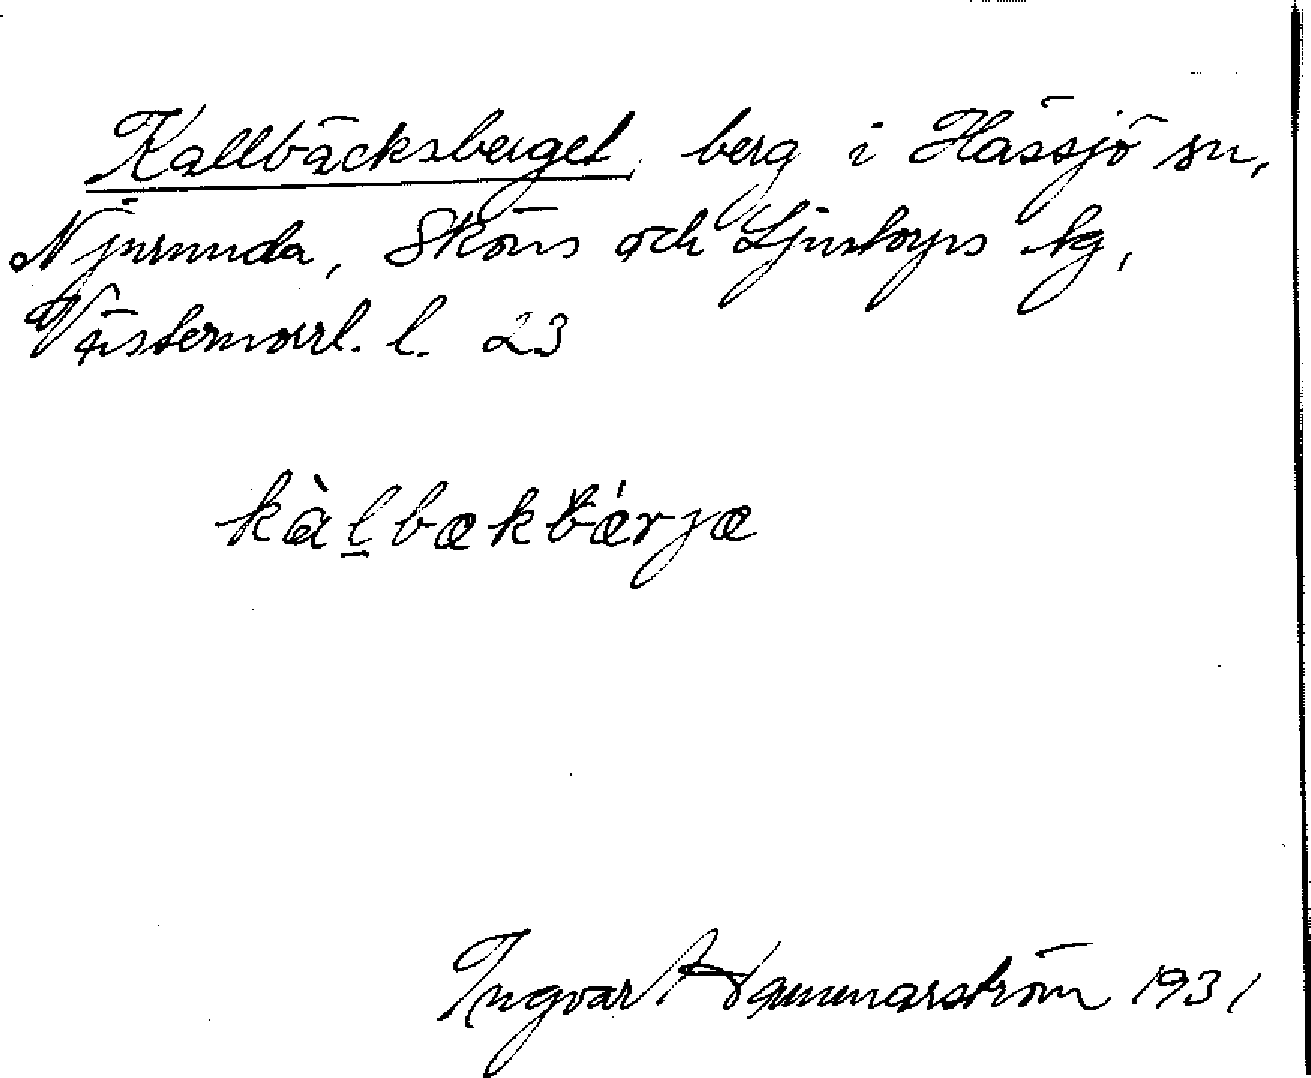 Kallbäcksberget berg i Hässjö sn,
Njurunda, Sköns och Ljustorps tg,
Västernorrl. l. 23
kàḻbækbǽrjæ
Ingvar Hammarström 1931